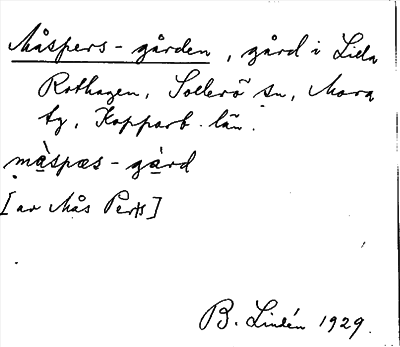 Måspers-gården, gård i Lilla
Rothagen, Sollerö sn, Mora
tg, Kopparb. län.
må̀spæs-gàrd
[av Mås Pers]
B. Lindén 1929.